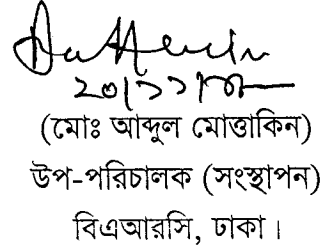 ২০/১১/
(মোঃ আব্দুল মোত্তাকিন)
উপ-পরিচালক (সংস্থাপন)
বিএআরসি, ঢাকা।